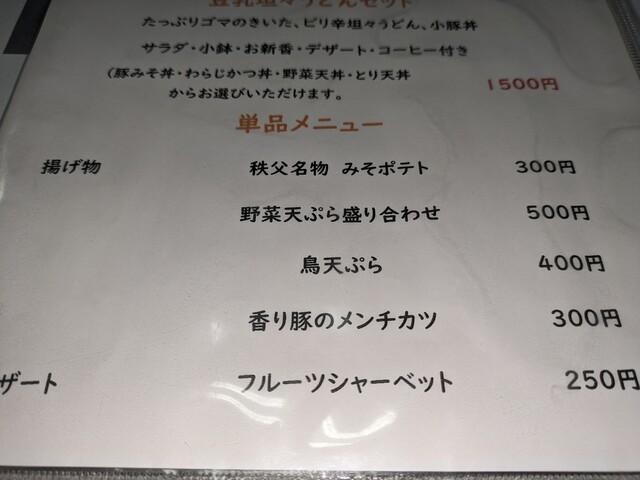 豆乳坦々うどんセット
たっぷりゴマのきいた、ピリ辛坦々うどん、小豚丼
サラダ・小鉢・お新香・デザート・コーヒー付き
(豚みそ丼・わらじかつ丼・野菜天丼・とり天丼
からお選びいただけます。 1500円
単品メニュー
揚げ物 秩父名物 みそポテト 300円
野菜天ぷら盛り合わせ 500円
鳥天ぷら 400円
香り豚のメンチカツ 300円
ザート フルーツシャーベット 250円